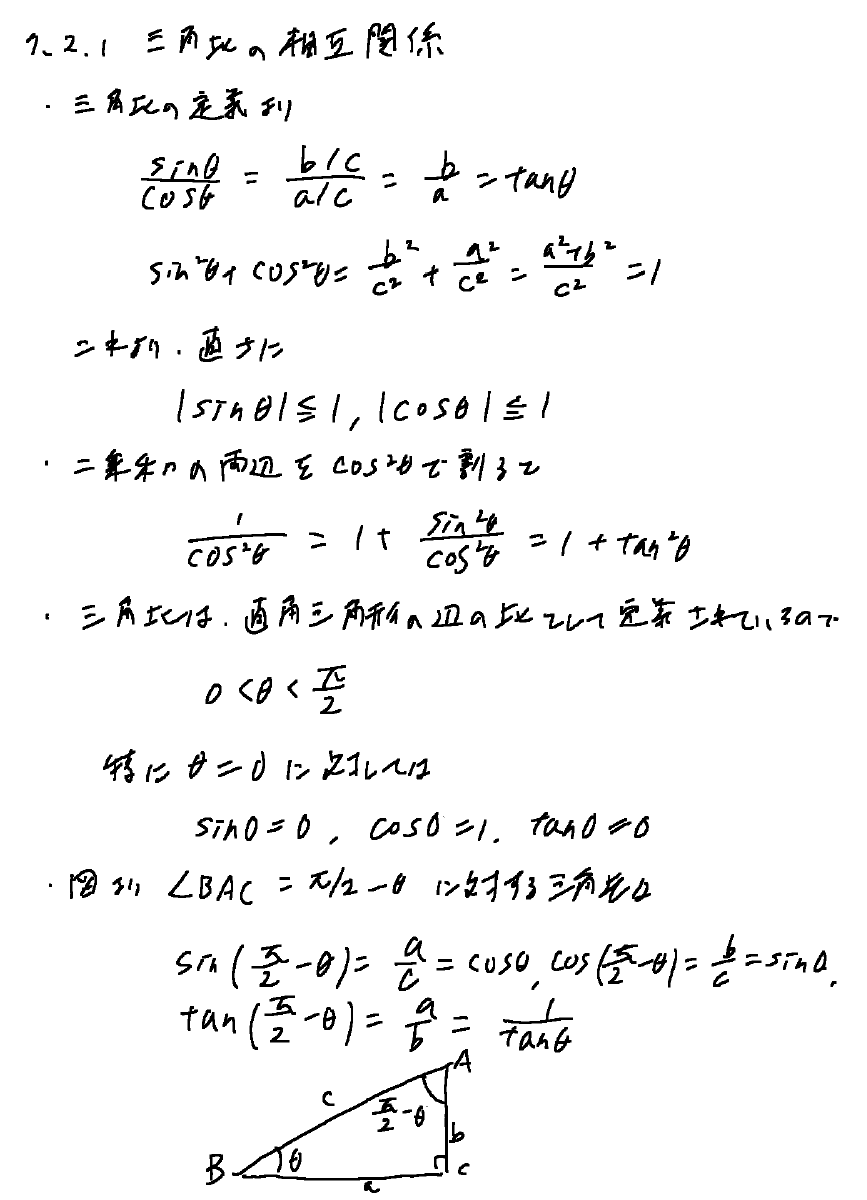 7.2.1 三角比の相互関係
・三角比の定義より
sinθ/cosθ = (b/c)/(a/c) = b/a = tanθ
sin²θ + cos²θ = b²/c² + a²/c² = (a²+b²)/c² = 1
これより、直ちに
|sinθ| ≦ 1, |cosθ| ≦ 1
・二乗和の両辺を cos²θ で割ると
1/cos²θ = 1 + sin²θ/cos²θ = 1 + tan²θ
・三角比は、直角三角形の辺の比として定義されているので
0 < θ < π/2
特に θ = 0 に対しては
sin0 = 0, cos0 = 1, tan0 = 0
・図より ∠BAC = π/2 - θ に対する三角比は
sin(π/2 - θ) = a/c = cosθ, cos(π/2 - θ) = b/c = sinθ,
tan(π/2 - θ) = a/b = 1/tanθ
A
c
π/2 - θ
b
B θ C
a